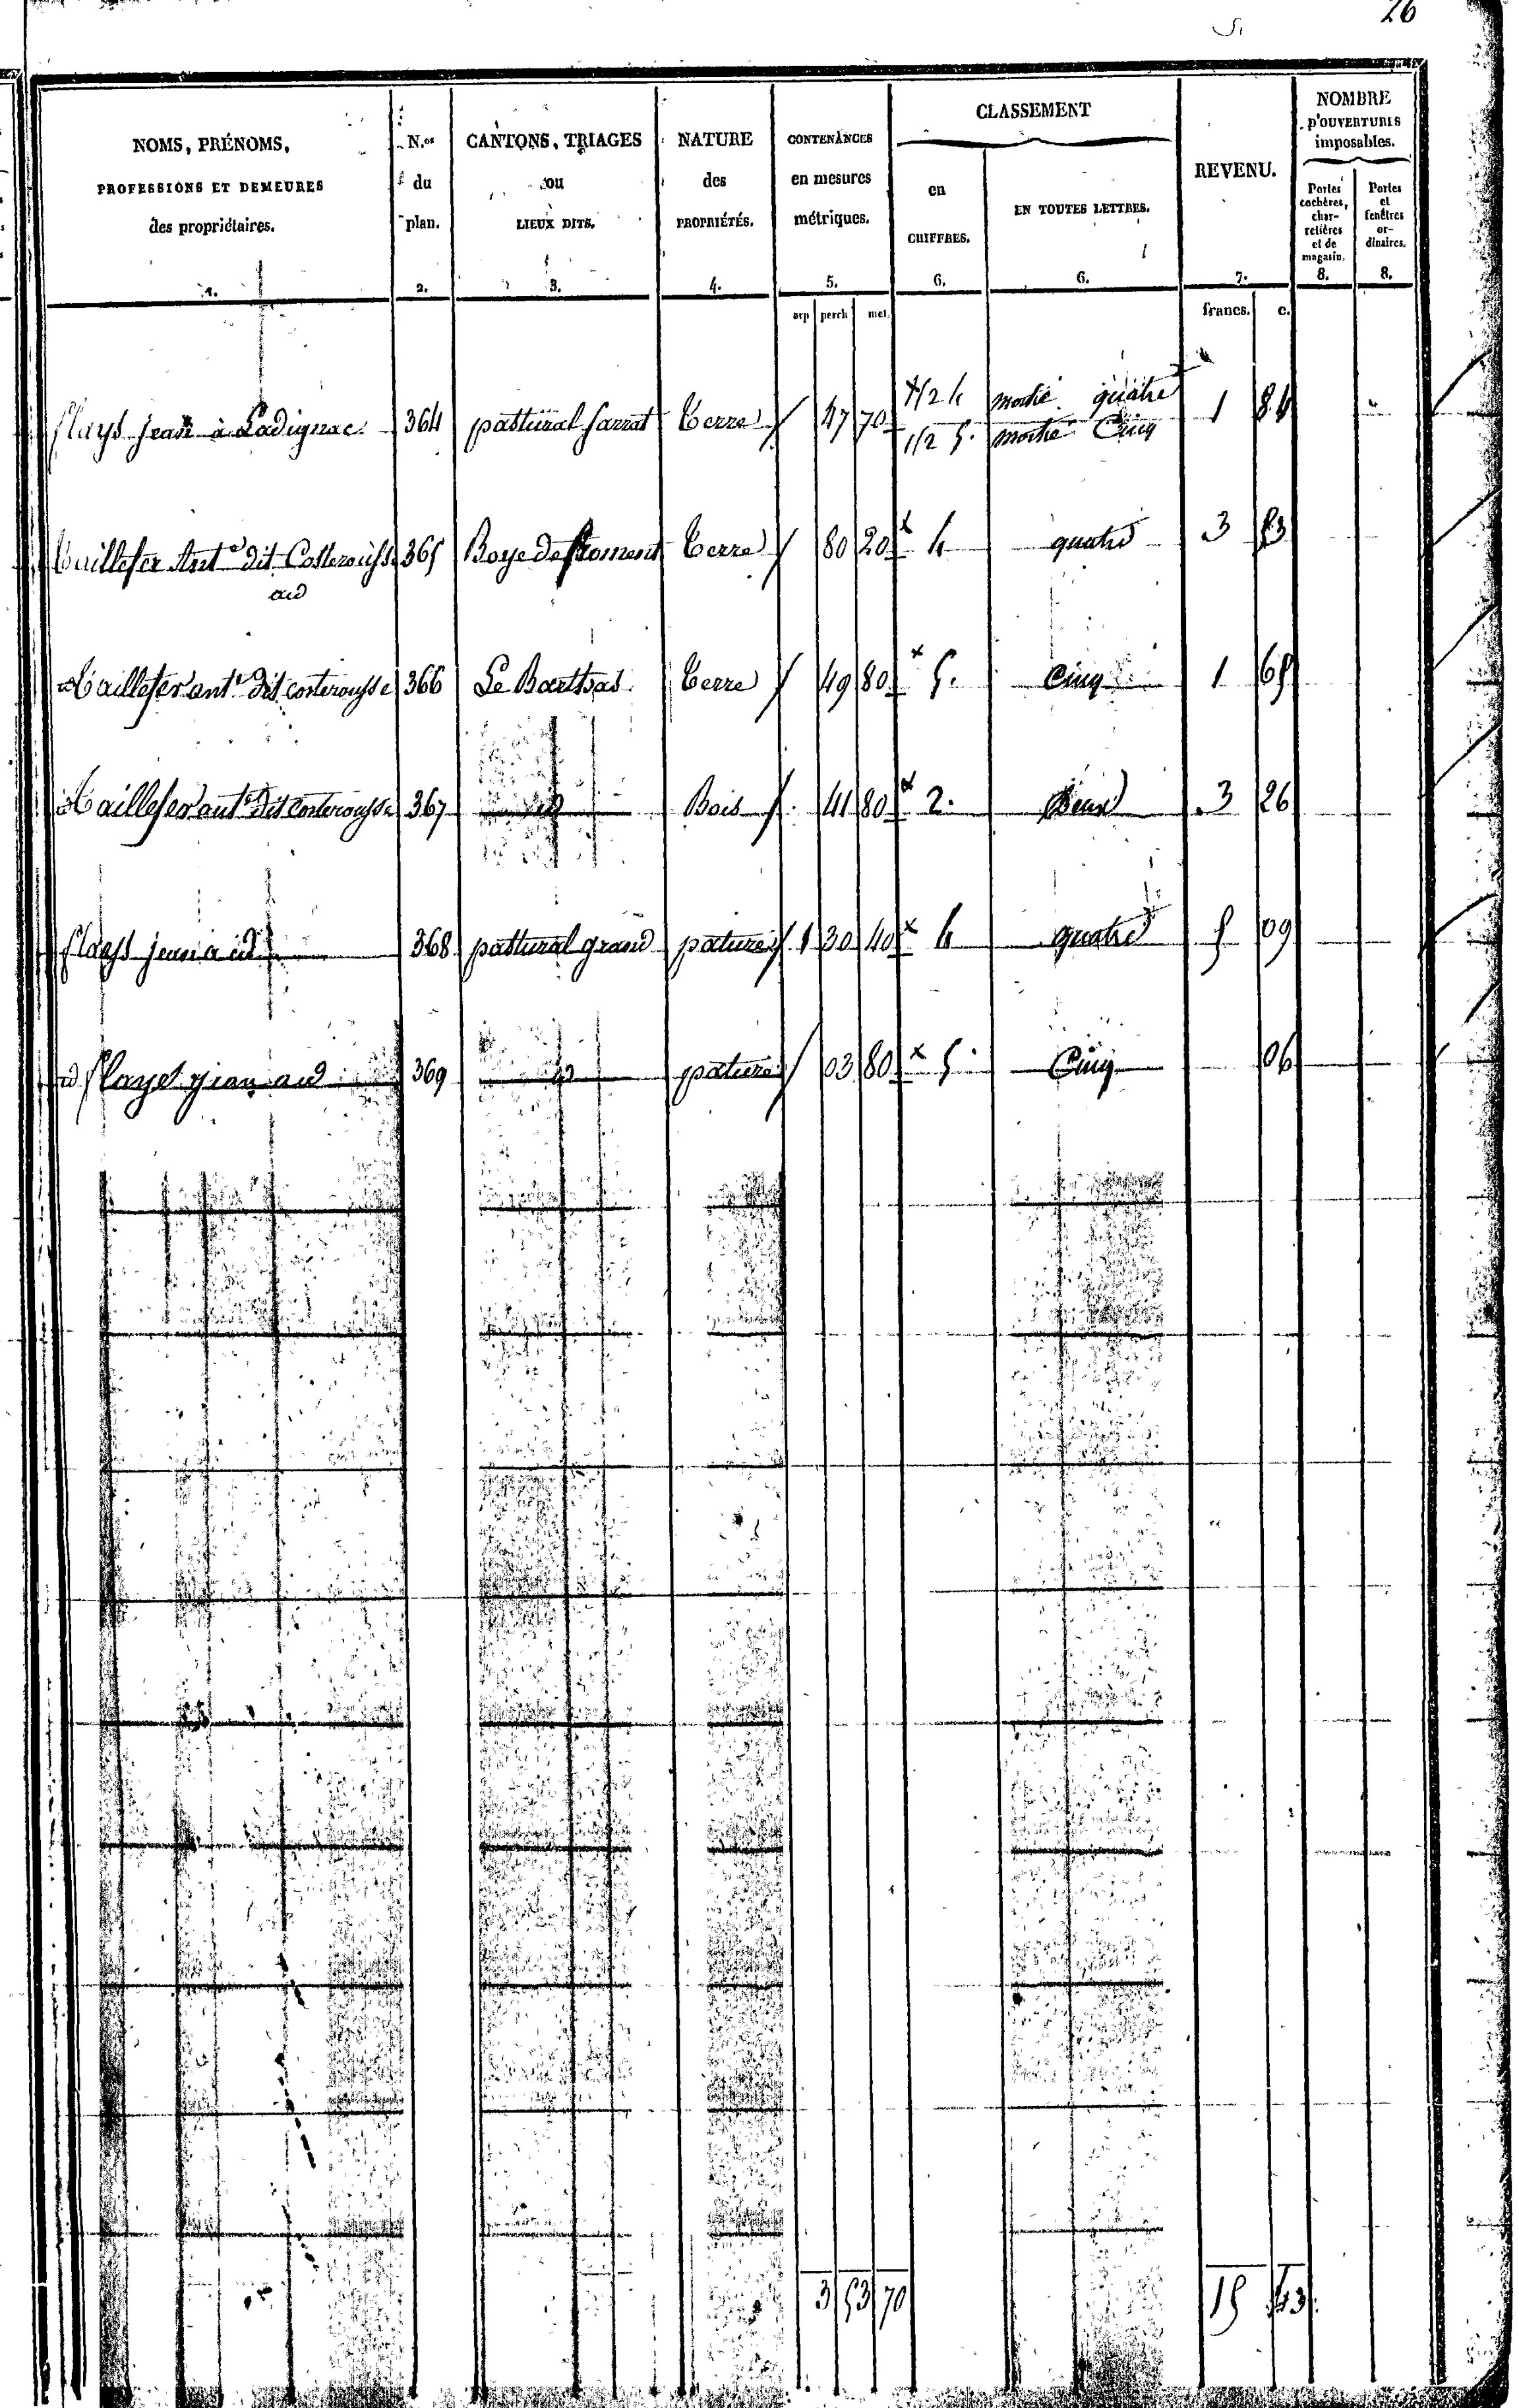 26
NOMS, PRÉNOMS, PROFESSIONS ET DEMEURES des propriétaires. 1.
N.os du plan. 2.
CANTONS, TRIAGES ou LIEUX DITS. 3.
NATURE des PROPRIÉTÉS. 4.
CONTENANCES en mesures métriques. 5.
CLASSEMENT
en CHIFFRES. 6.
EN TOUTES LETTRES. 6.
REVENU. 7.
NOMBRE D'OUVERTURES imposables.
Portes cochères, charretières et de magasin. 8.
Portes et fenêtres ordinaires. 8.
arp perch met. francs. c.
flays jean à Ladignac 364 pastural sarrat Terre 47 70 1/2 4 moitié quatre 1 84
1/2 5. moitié Cinq
Taillefer Ant.e dit Costerousse 365 Boye de froment Terre 80 20 x 4 quatre 3 13
aud
Taillefer ant.e dit costerousse 366 Le Barthas Terre 49 80 x 5. Cinq 1 65
id Taillefer ant.e dit costerousse 367 id Bois 41 80 x 2. Deux 3 26
flays jean a id 368 pastural grand pature 1 30 40 x 4 quatre 5 09
id flays jean aud 369 id pature 03 80 x 5. Cinq 06
3 53 70 15 43